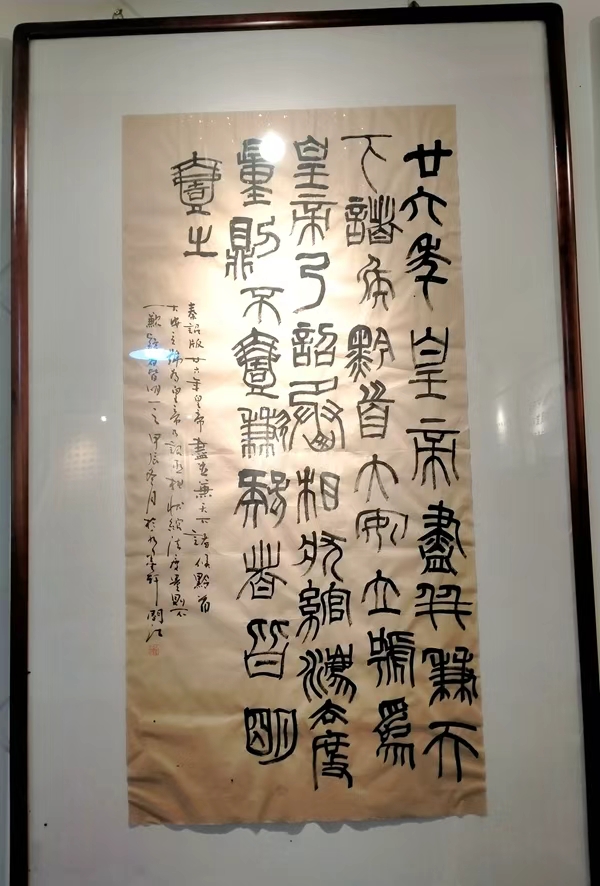 廿六年皇帝盡并兼天
下諸侯黔首大安立號爲
皇帝乃詔丞相狀綰灋度
量則不壹歉疑者皆明
壹之
秦詔版廿六年皇帝盡并兼天下諸侯黔首
大安立號为皇帝乃詔丞相狀綰法度量則不
一歉疑者皆明一之甲辰冬月於軒